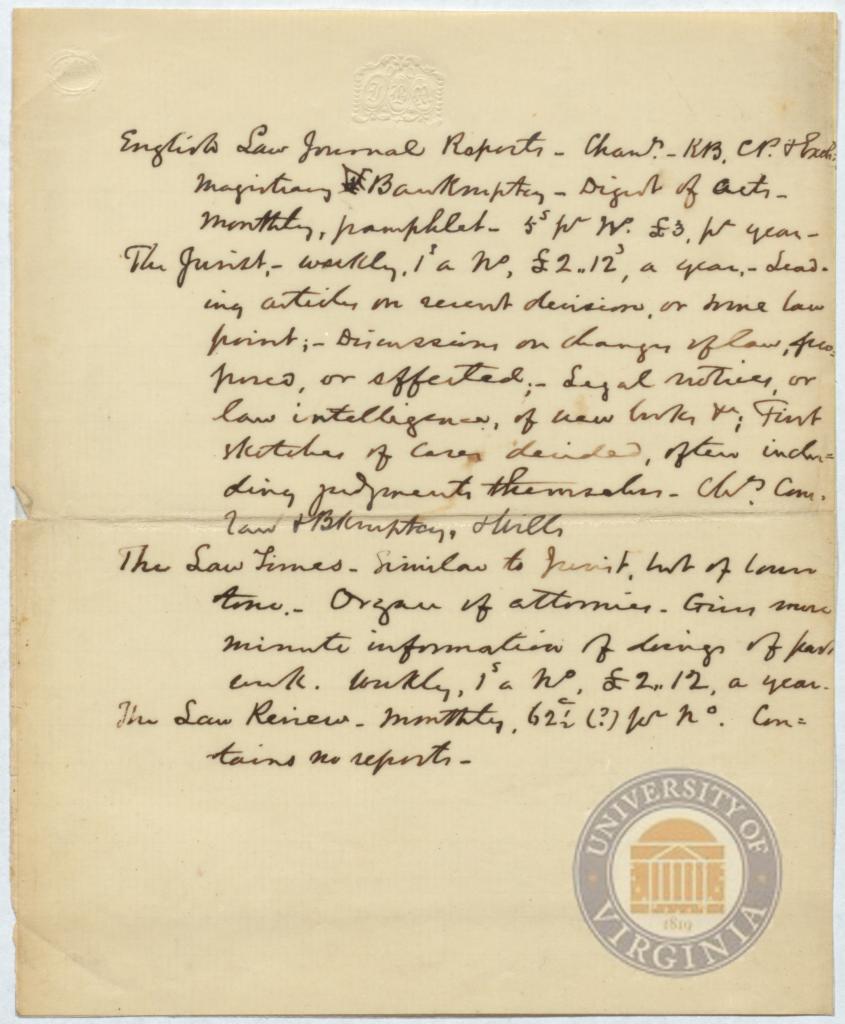 English Law Journal Reports - Chanr. - KB, CP. & Exch:
Magistracy & Bankruptcy - Digest of acts -
monthly, pamphlet - 5s pr No. £3, pr year -
The Jurist, - weekly, 1s a No, £2..12s, a year, - Lead-
ing articles on recent decision, or some law
point; - Discussions on changes of law, pro-
posed, or effected; - Legal notices, or
law intelligence, of new books &c; First
sketches of cases decided, often inclu=
ding judgments themselves - Com.
Law & Bkruptcy, & Wills
The Law Times - Similar to Jurist, but of lower
tone. - Organ of attornies - Gives more
minute information of doings of past
week. Weekly, 1s a No, £2..12, a year.
The Law Review - Monthly, 62½c (?) pr No. Con=
tains no reports -
UNIVERSITY OF
1819
VIRGINIA